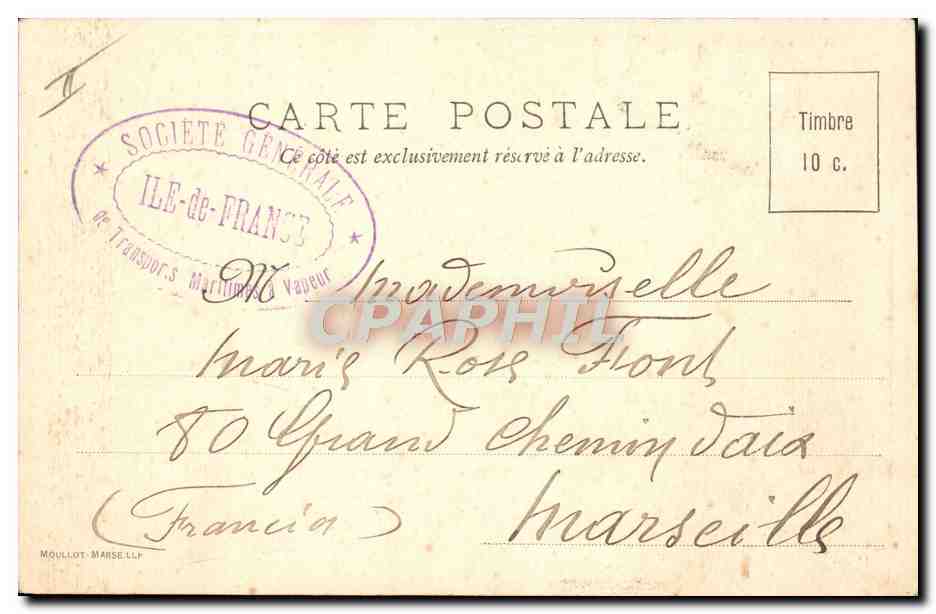 II
CARTE POSTALE
Ce côté est exclusivement réservé à l'adresse.
Timbre
10 c.
SOCIÉTÉ GÉNÉRALE
ILE-de-FRANCE
de Transports Maritimes à Vapeur
M Mademoiselle
CPAPHIL
Marie Rose Font
80 Grand Chemin d'aix
(Francia)
Marseille
MOULLOT-MARSEILLE